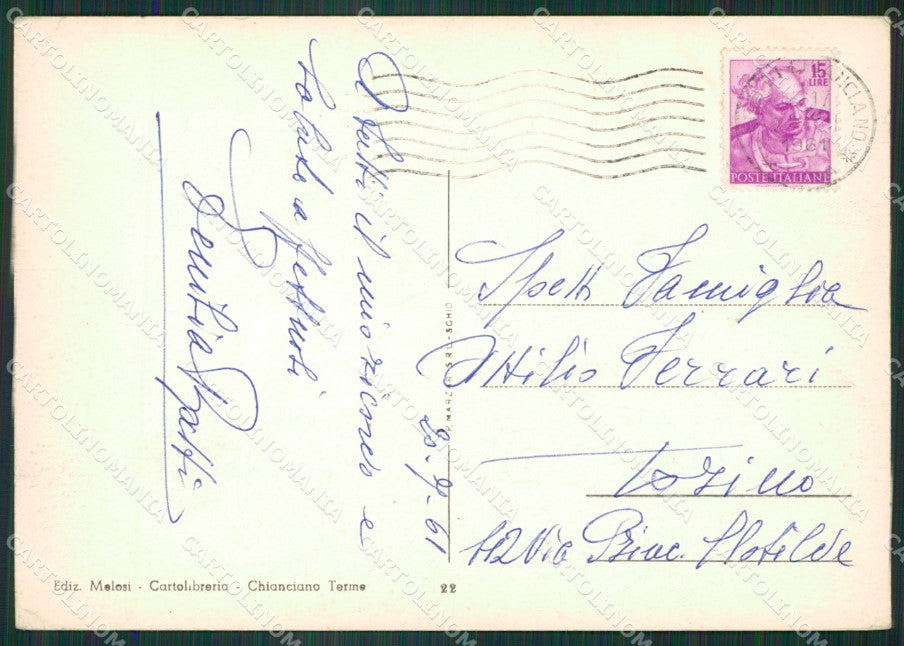 A tutti il mio ricordo e
saluti affettuosi
20.9.61
Spett. Famiglia
Attilio Ferrari
Torino
42 Via Princ. Clotilde
15
LIRE
POSTE ITALIANE
1961
S.R.L. - SCHIO
Ediz. Melosi - Cartolibreria - Chianciano Terme
22
CARTOLINOMANIA